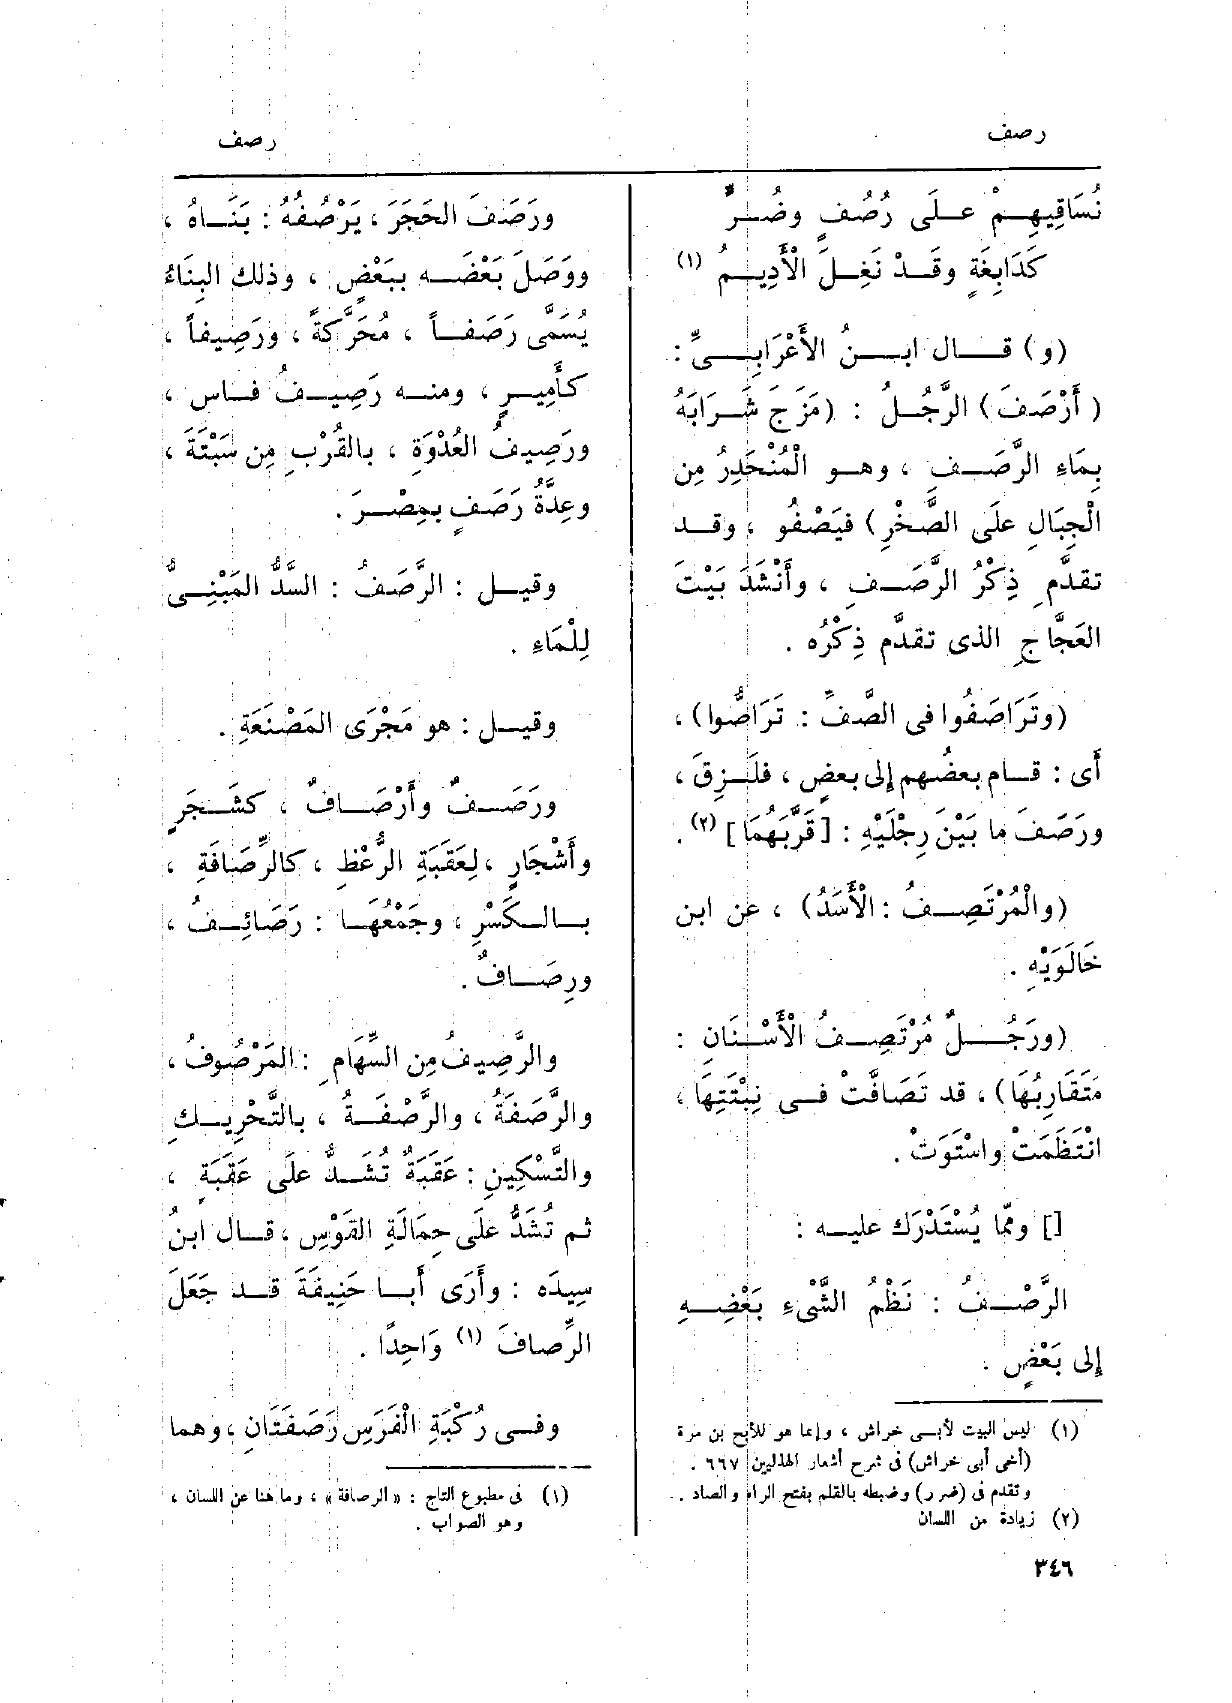 رصف
رصف
نُسَاقِيهِمْ عَلَى رُصُفٍ وضُرٍّ
كَدَابِغَةٍ وقَدْ نَغِلَ الْأَدِيمُ (١)
(و) قال ابنُ الأَعْرَابِيِّ :
(أَرْصَفَ) الرَّجُلُ : (مَزَجَ شَرَابَهُ
بِمَاءِ الرَّصَفِ ، وهو الْمُنْحَدِرُ مِن
الْجِبَالِ علَى الصَّخْرِ) فيَصْفُو ، وقد
تقدَّم ذِكْرُ الرَّصَفِ ، وأَنْشَدَ بَيْتَ
العَجَّاجِ الذى تقدَّم ذِكْرُه .
(وتَرَاصَفُوا فى الصَّفِّ : تَرَاصُّوا) ،
أَى : قام بعضُهم إلى بعضٍ ، فلَزِقَ ،
ورَصَفَ ما بَيْنَ رِجْلَيْهِ : [قَرَّبَهُمَا] (٢) .
(والْمُرْتَصِفُ : الأَسَدُ) ، عن ابن
خَالَوَيْهِ .
(ورَجُلٌ مُرْتَصِفُ الْأَسْنَانِ :
مُتَقَارِبُهَا) ، قد تَصَافَّتْ فى نِبْتَتِهَا ،
انْتَظَمَتْ واسْتَوَتْ .
[] وممّا يُسْتَدْرَك عليه :
الرَّصْفُ : نَظْمُ الشَّىْءِ بَعْضِهِ
إلى بَعْضٍ .
(١) ليس البيت لأبى خراش ، وإنما هو للأبح بن مرة
(أخى أبى خراش) فى شرح أشعار الهذليين ٦٦٧ .
وتقدم فى (ضرر) وضبطه بالقلم بفتح الراء والصاد .
(٢) زيادة من اللسان
ورَصَفَ الحَجَرَ ، يَرْصُفُهُ : بَنَاهُ ،
ووَصَلَ بَعْضَه ببَعْضٍ ، وذلك البِنَاءُ
يُسَمَّى رَصَفاً ، مُحَرَّكةً ، ورَصِيفاً ،
كأَمِيرٍ ، ومنه رَصِيفُ فاس ،
ورَصِيفُ العُدْوَةِ ، بالقُرْبِ مِن سَبْتَةَ ،
وعِدَّةُ رَصَفٍ بمِصْرَ .
وقيل : الرَّصَفُ : السَّدُّ المَبْنِىُّ
لِلْمَاءِ .
وقيل : هو مَجْرَى المَصْنَعَةِ .
ورَصَفٌ وأَرْصَافٌ ، كشَجَرٍ
وأَشْجَارٍ ، لِعَقَبَةِ الرُّعْظِ ، كالرِّصَافَةِ ،
بالكَسْرِ ، وجَمْعُهَا : رَصَائِفُ ،
ورِصَافٌ .
والرَّصِيفُ مِن السِّهَامِ : المَرْصُوفُ ،
والرَّصَفَةُ ، والرَّصْفَةُ ، بالتَّحْرِيكِ
والتَّسْكِينِ : عَقَبَةٌ تُشَدُّ علَى عَقَبَةٍ ،
ثم تُشَدُّ علَى حِمَالَةِ القَوْسِ ، قال ابنُ
سِيدَه : وأَرَى أَبا حَنِيفَةَ قد جَعَلَ
الرِّصافَ (١) وَاحِدًا .
وفى رُكْبَةِ الْفَرَسِ رَصَفَتَانِ ، وهما
(١) فى مطبوع التاج : «الرصافة» ، وما هنا عن اللسان ،
وهو الصواب .
٣٤٦